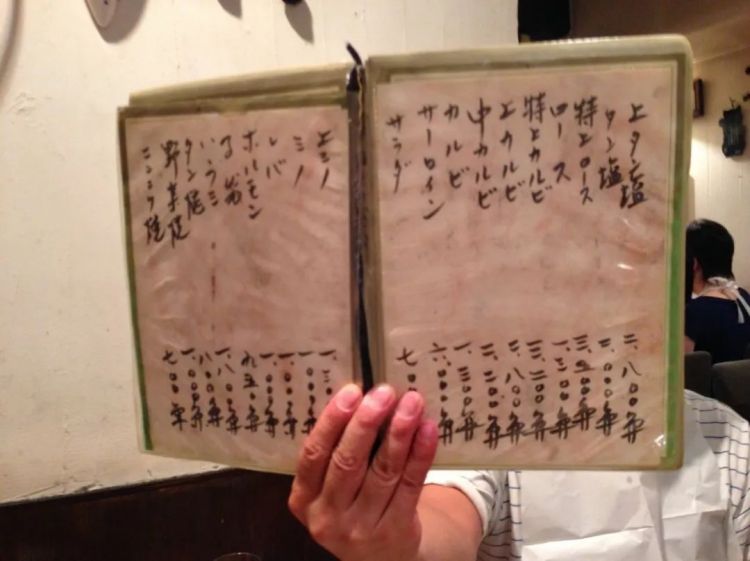 上タン塩 二、八〇〇円
タン塩 二、〇〇〇円
特上ロース 三、五〇〇円
ロース 一、三〇〇円
特上カルビ 三、二〇〇円
上カルビ 二、八〇〇円
中カルビ 二、二〇〇円
カルビ 一、三〇〇円
サーロイン
サラダ 七〇〇円
上ミノ 一、三〇〇円
ミノ 一、〇〇〇円
レバ 一、〇〇〇円
ホルモン 一、〇〇〇円
子袋 九五〇円
ハラミ 一、八〇〇円
タン焼 八〇〇円
野菜焼
ニンニク焼 七〇〇円